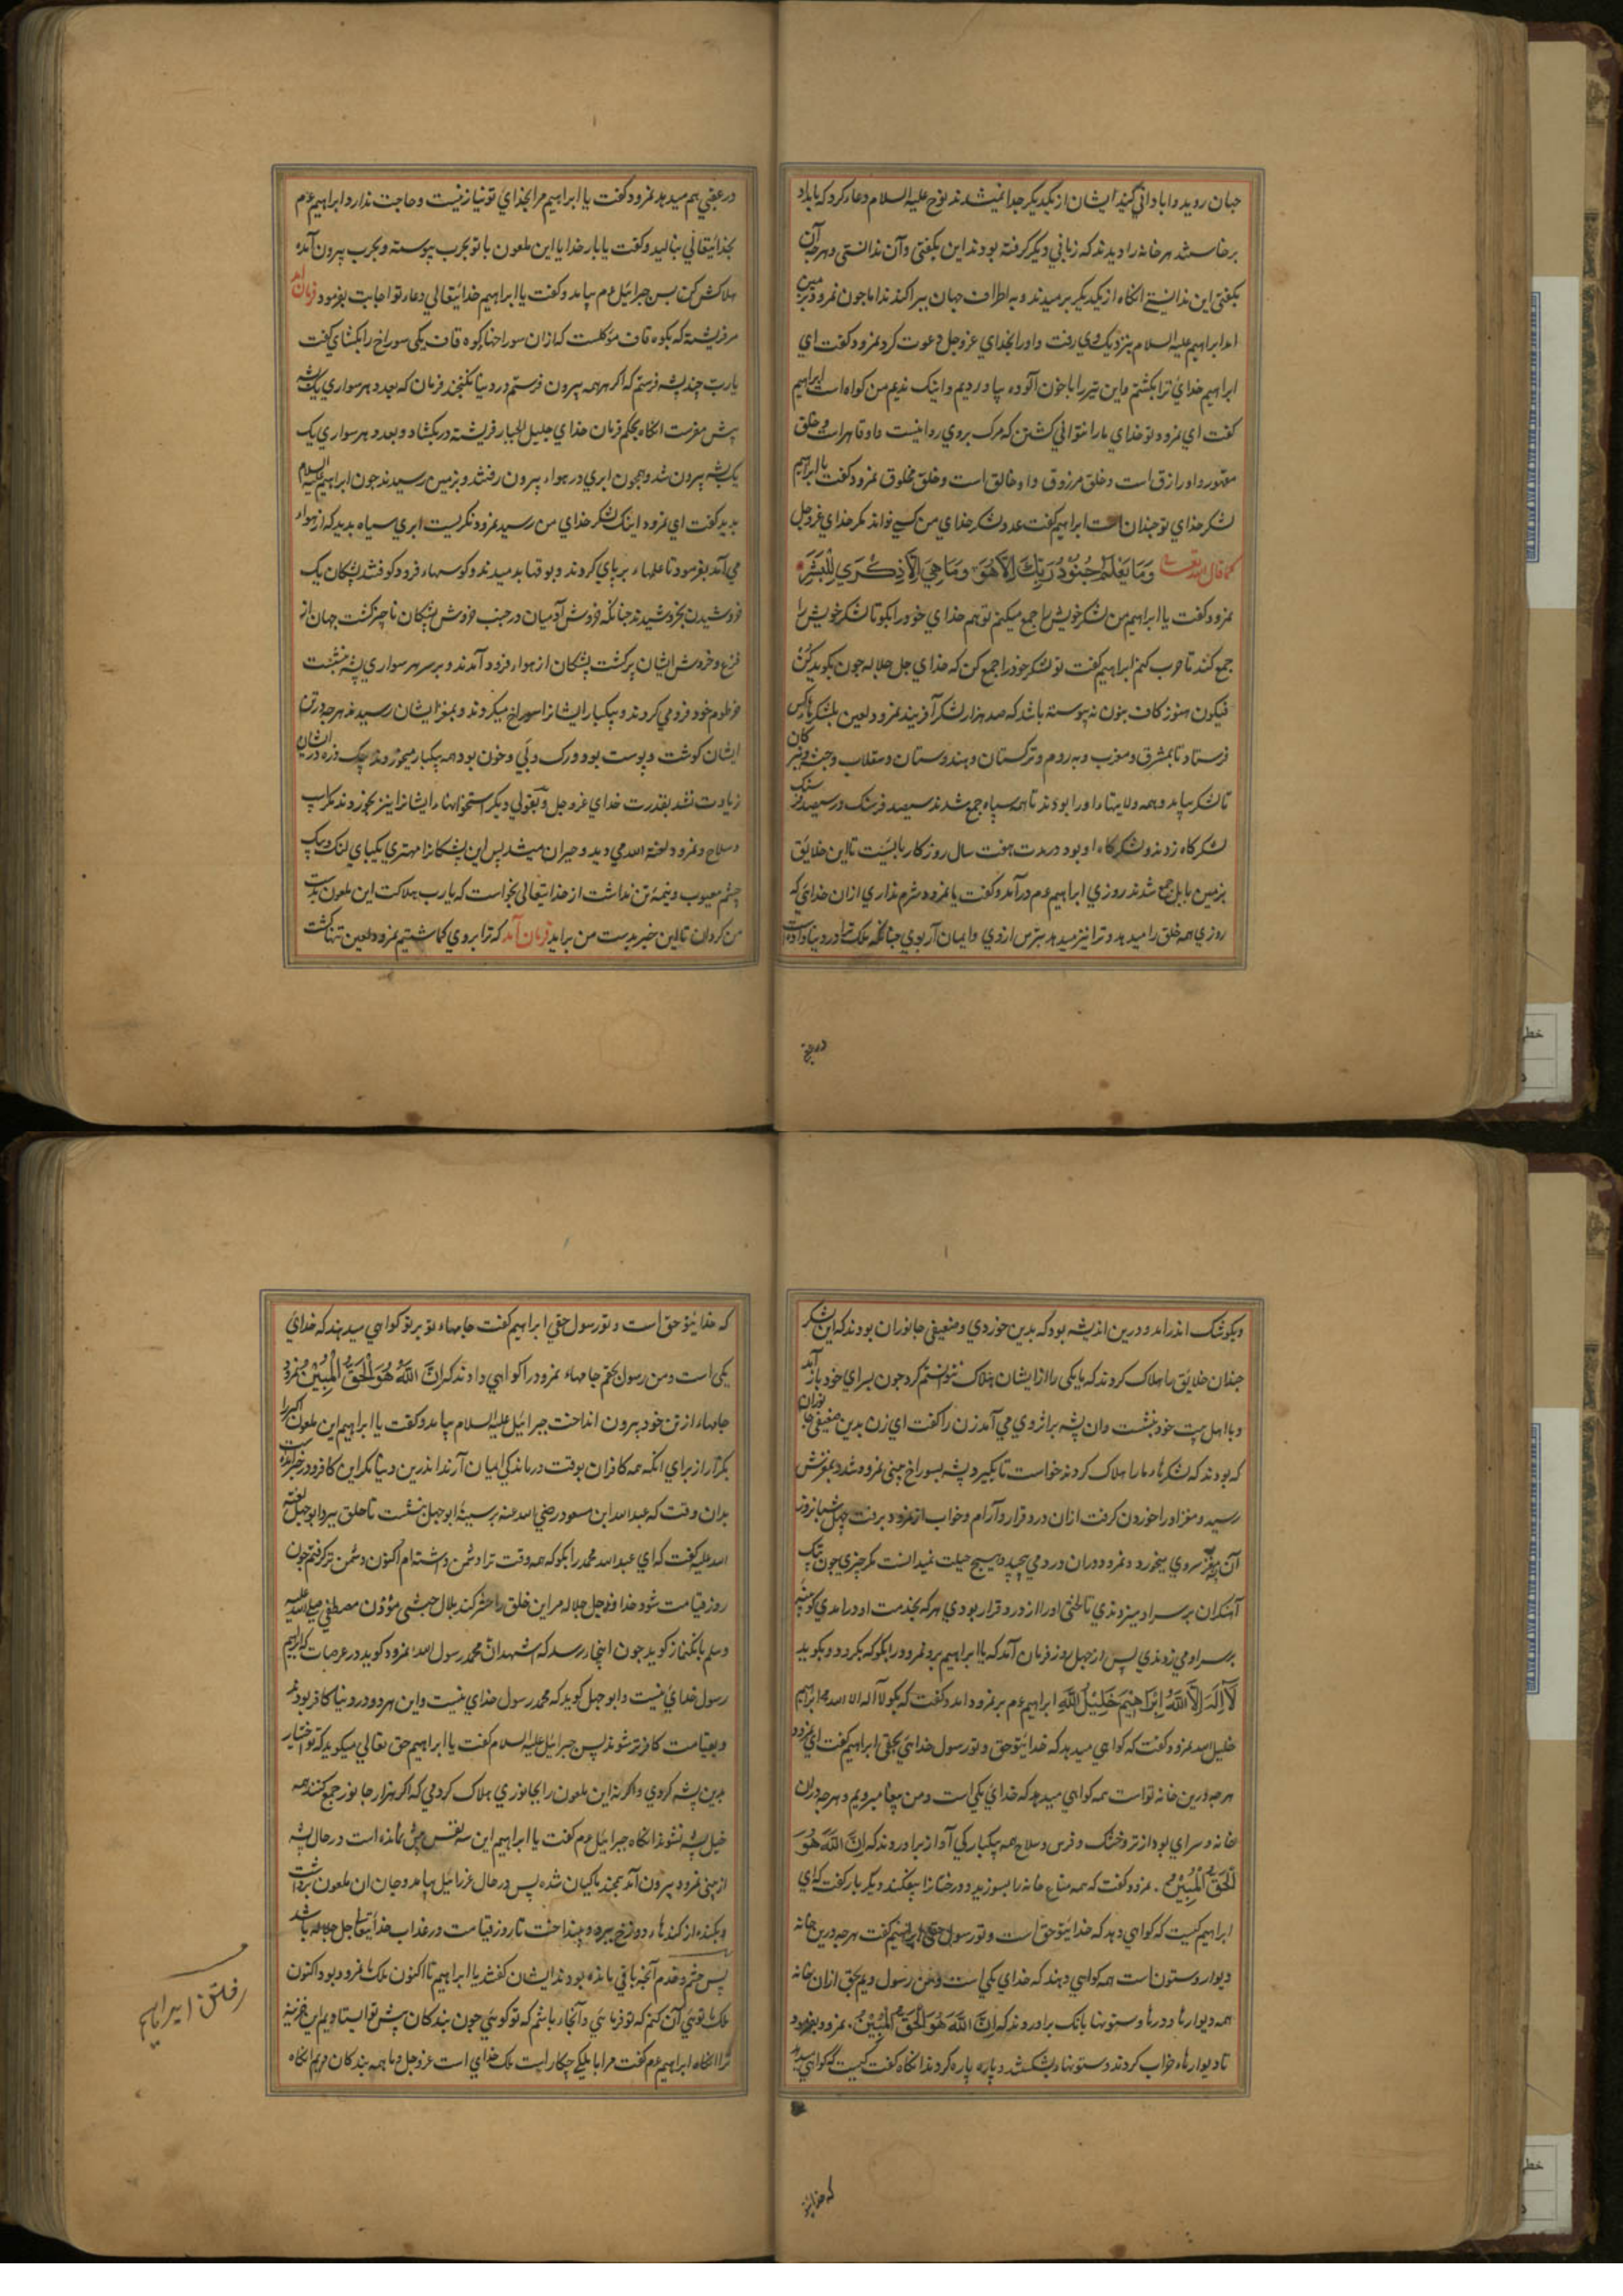 جهان روید و ابادانی کنید ایشان از یکدیکر جدا نمیشدند نوح علیه السلام دعا کرد که بامداد
برخاستند هر خانه را دیدند که زبانی دیکر کرفته بودند این بکفتی و آن ندانستی و هرچه آن
بکفتی این ندانستی انکاه از یکدیکر برمیدند و به اطراف جهان پراکندند اما چون نمرود بزمین
امد ابراهیم علیه السلام بنزدیک وی رفت و اورا بخدای عزوجل دعوت کرد نمرود کفت ای
ابراهیم خدای ترا بکشتم و این تیر را با خون آلوده بیاوردیم و اینک ندیم من کواه است ابراهیم
کفت ای نمرود تو خدای مارا نتوانی کشتن که مرک بر وی روا نیست و او قاهر است و خلق
مقهور و او رازق است و خلق مرزوق و او خالق است و خلق مخلوق نمرود کفت یا ابراهیم
لشکر خدای تو چندان است ابراهیم کفت عدد لشکر خدای من کسی نداند مکر خدای عزوجل
کما قال الله تعالی وَمَا یَعْلَمُ جُنُوْدَ رَبِّکَ اِلَّا هُوَ وَمَا هِیَ اِلَّا ذِکْرَی لِلْبَشَرِ
نمرود کفت یا ابراهیم من لشکر خویش را جمع میکنم تو هم خدای خود را بکو تا لشکر خویش را
جمع کند تا حرب کنم ابراهیم کفت تو لشکر خود را جمع کن که خدای جل جلاله چون بکوید کُنْ
فیکون هنوز کاف بنون نه پیوسته باشد که صد هزار لشکر آفریند نمرود لعین بلشکرها کس
فرستاد تا بمشرق و مغرب و به روم و ترکستان و هندوستان و سقلاب و
تا لشکر بیاید و همه ولایتها اورا بودند تا همه سپاه جمع شدند سیصد فرسنک در سیصد فرسنک
لشکرکاه زدند و لشکرکاه او بود در مدت هفت سال روزکار بایست تا این خلایق
بزمین بابل جمع شدند روزی ابراهیم عم درآمد و کفت یا نمرود شرم نداری ازان خدائی که
روزی همه خلق را میدهد و ترا نیز میدهد بترس از وی و ایمان آر بوی چنانکه ملک ترا در دنیا داده است
در عقبی
در عقبی هم میدهد نمرود کفت یا ابراهیم مرا بخدای تو نیاز نیست و حاجت ندارد ابراهیم عم
بخدایتعالی بنالید و کفت یا بار خدایا این ملعون با تو بحرب پیوسته و بحرب بیرون آمده
هلاکش کن پس جبرائیل عم بیامد و کفت یا ابراهیم خدایتعالی دعاء تو اجابت بفرمود فرمان امد
مر فریشته که بکوه قاف موکلست که ازان سوراخهاء کوه قاف یکی سوراخ را بکشای کفت
یارب چند پشه فرستم که اکر همه بیرون فرستم در دنیا نکنجند فرمان که بعدد هر سواری یک پشه
پیش مفرست انکاه بحکم فرمان خدای جلیل الجبار فریشته در بکشاد و بعدد هر سواری یک
یک پشه بیرون شد و همچون ابری در هواء بیرون رفتند و بزمین رسیدند چون ابراهیم علیه السلام
بدید کفت ای نمرود اینک لشکر خدای من رسید نمرود نکریست ابری سیاه بدید که از هواء
می آمد بفرمود تا علمهاء برپای کردند و بوقها بدمیدند و کوسهاء فرود کوفتند پشکان یک
خروشیدن بخروشیدند چنانکه خروش آدمیان در جنب خروش پشکان ناچیز کشت جهان از
فزع و خروش ایشان پر کشت پشکان از هواء فرود آمدند و بر سر هر سواری پشه بنشست
خرطوم خود فرو می کردند و بیکبار ایشانرا سوراخ میکردند و بمغز ایشان رسیدند هرچه در تن
ایشان کوشت و پوست بود و رک و پی و خون بود همه بیکبار میخوردند و یک ذره در ایشان
زیادت نشد بقدرت خدای عزوجل و بقولی دیکر استخوانهاء ایشانرا نیز بخوردند مکر اسپ
و سلاح و نمرود لعنه الله می دید و حیران میشد پس این پشکانرا مهتری بیکپای لنک و بیک
چشم معیوب و نیمه تن نداشت از خدایتعالی بخواست که یارب هلاکت این ملعون بدست
من کردان تا این خبر بدست من براید فرمان آمد که ترا بروی کماشتیم نمرود لعین تنها کشت
و بکوشک اندر امد و درین اندیشه بود که بدین خوردی و ضعیفی جانوران بودند که این لشکر
چندان خلایق را هلاک کردند که ما یکی را از ایشان هلاک نتوانستم کرد چون بسرای خود باز آمد
و با اهل بیت خود بنشست وان پشه بر اثر وی می آمد زن را کفت ای زن بدین ضعیفی جانوران
که بودند که لشکرهاء مارا هلاک کردند خواست تا بکیرد پشه بسوراخ بینی نمرود شد و بمغزش
رسید و مغز اورا خوردن کرفت ازان درد قرار و آرام و خواب از نمرود برفت چهل شبانروز
آن پشه مغز سر وی میخورد و نمرود دران درد می پیچید و هیچ حیلت نمیدانست مکر چیزی چون پتک
آهنکران بر سر او میزدندی تا لختی اورا از درد قرار بودی هر که بخدمت او در امدی
بر سر او می زدندی پس از چهل روز فرمان آمد که یا ابراهیم برو نمرود را بکو که بکرد و بکوید
لَا اِلَهَ اِلَّا اللهُ اِبْرَاهِیْمَ خَلِیْلُ اللهِ ابراهیم عم بر نمرود امد و کفت که بکو لا اله الا الله ابراهیم
خلیل الله نمرود کفت که کواهی میدهد که خدایتو حق و تو رسول خدائی بحق ابراهیم کفت ای نمرود
هرچه درین خانه تو است همه کواهی میدهد که خدای یکی است و من پیغامبر ویم و هرچه دران
خانه و سرای بود از تر و خشک و فرس و سلاح همه بیکبارکی آواز برآوردند که اِنَّ اللهَ هُوَ
الْحَقُّ الْمُبِیْنُ . نمرود کفت که همه متاع خانه را بسوزید و درختانرا بیفکنند دیکر بار کفت که ای
ابراهیم کیست که کواهی دهد که خدایتو حق است و تو رسول حقی ابراهیم کفت هرچه درین خانه
دیوار و ستون است همه کواهی دهند که خدای یکی است و من رسول ویم بحق ازان خانه
همه دیوارها و درها و ستونها بانک برآوردند که اِنَّ اللهَ هُوَ الْحَقُّ الْمُبِیْنُ . نمرود بفرمود
تا دیوارهاء خراب کردند و ستونهاء بشکستند و پاره پاره کردند انکاه کفت کیست که کواهی میدهد
که خدایتو
که خدایتو حق است و تو رسول حقی ابراهیم کفت جامهاء تو بر تو کواهی میدهند که خدای
یکی است و من رسول بحقم جامهاء نمرود را کواهی دادند که اِنَّ اللهَ هُوَ الْحَقُّ الْمُبِیْنُ نمرود
جامهاء از تن خود بیرون انداخت جبرائیل علیه السلام بیامد و کفت یا ابراهیم این ملعون
بکذار از برای انکه همه کافران بوقت درماندکی ایمان آرند اندرین دنیا مکر این کافر و در خبر آمده است
بدان وقت که عبدالله ابن مسعود رضی الله عنه بر سینه ابوجهل بنشست تا حلق ببرد ابوجهل لعنه
الله علیه کفت که ای عبدالله محمد را بکو که همه وقت ترا دشمن داشته ام اکنون دشمن تر کرفتم چون
روز قیامت شود خداوند جل جلاله مر این خلق را حشر کند بلال حبشی موذن مصطفی صلی الله علیه
وسلم بانکنماز کوید چون اینجا رسد که اشهد ان محمد رسول الله نمرود کوید در عرصات که ابراهیم
رسول خدای نیست و ابوجهل کوید که محمد رسول خدای نیست و این هر دو در دنیا کافر بودند
و بقیامت کافرتر شوند پس جبرائیل علیه السلام کفت یا ابراهیم حق تعالی میکوید که تو اختیار
بدین پشه کردی و اکر نه این ملعون را بجانوری هلاک کردمی که اکر هزار جانور جمع کنند همه
خیل پشه نشوند انکاه جبرائیل عم کفت یا ابراهیم این سه نفس بیش نمانده است در حال پشه
از بینی نمرود بیرون آمد بچند ماکیان شده پس در حال عزرائیل بیامد و جان ان ملعون برداشت
و بکنده از کندهاء دوزخ ببرد و بینداخت تا روز قیامت در عذاب خدایتعالی جل جلاله باشد
پس حشم و خدم آنچه باقی مانده بودند ایشان کفتند یا ابراهیم تا اکنون ملک ما نمرود بود اکنون
ملک ما توئی آن کنیم که تو فرمائی و آنجا باشیم که تو کوئی چون بندکان پیش تو ایستاده ایم این خزینه
ترا انکاه ابراهیم عم کفت مرا با ملک چکار است ملک خدای است عزوجل و ما همه بندکان ویم انکاه
رفتن ابراهیم
خطی
خطی